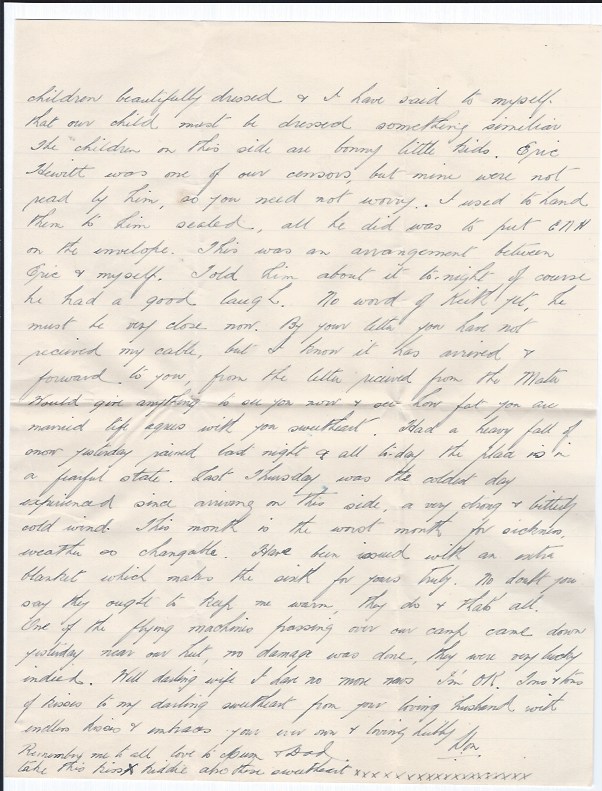 children beautifully dressed & I have said to myself.
that our child must be dressed something similiar
The children on this side are bonny little kids. Eric
Hewitt was one of our censors, but mine were not
read by him, so you need not worry.. I used to hand
them to him sealed, all he did was to put
on the envelope. This was an arrangement between
Eric & myself. Told him about it to-night of course
he had a good laugh. No word of Keith yet, he
must be very close now. By your letter you have not
recieved my cable, but I know it has arrived &
forward to you, from the letter recieved from the Mater
Would give anything to see you now & see how fat you are
married life agrees with you sweetheart. Had a heavy fall of
snow yesterday rained last night & all to-day the place is in
a fearful state. Last Thursday was the coldest day
experienced since arriving on this side, a very strong & bitterly
cold wind. This month is the worst month for sickness,
weather so changable. Have been issued with an extra
blanket which makes the sixth for yours truly. No doubt you
say they ought to keep me warn, they do & thats all.
One of the flying machines passing over our camp came down
yesterday near our hut, no damage was done, they were very lucky
indeed. Well darling wife I have no more news I'm OK. Tons & tons
of kisses to my darling sweetheart from your loving husband with
endless kisses & embraces your ever own & loving hubby Don.
Remember me to all love to Mum & Dad
take this kiss X kiddie also these sweetheart x x x x x x x x x x x x x x x x x x